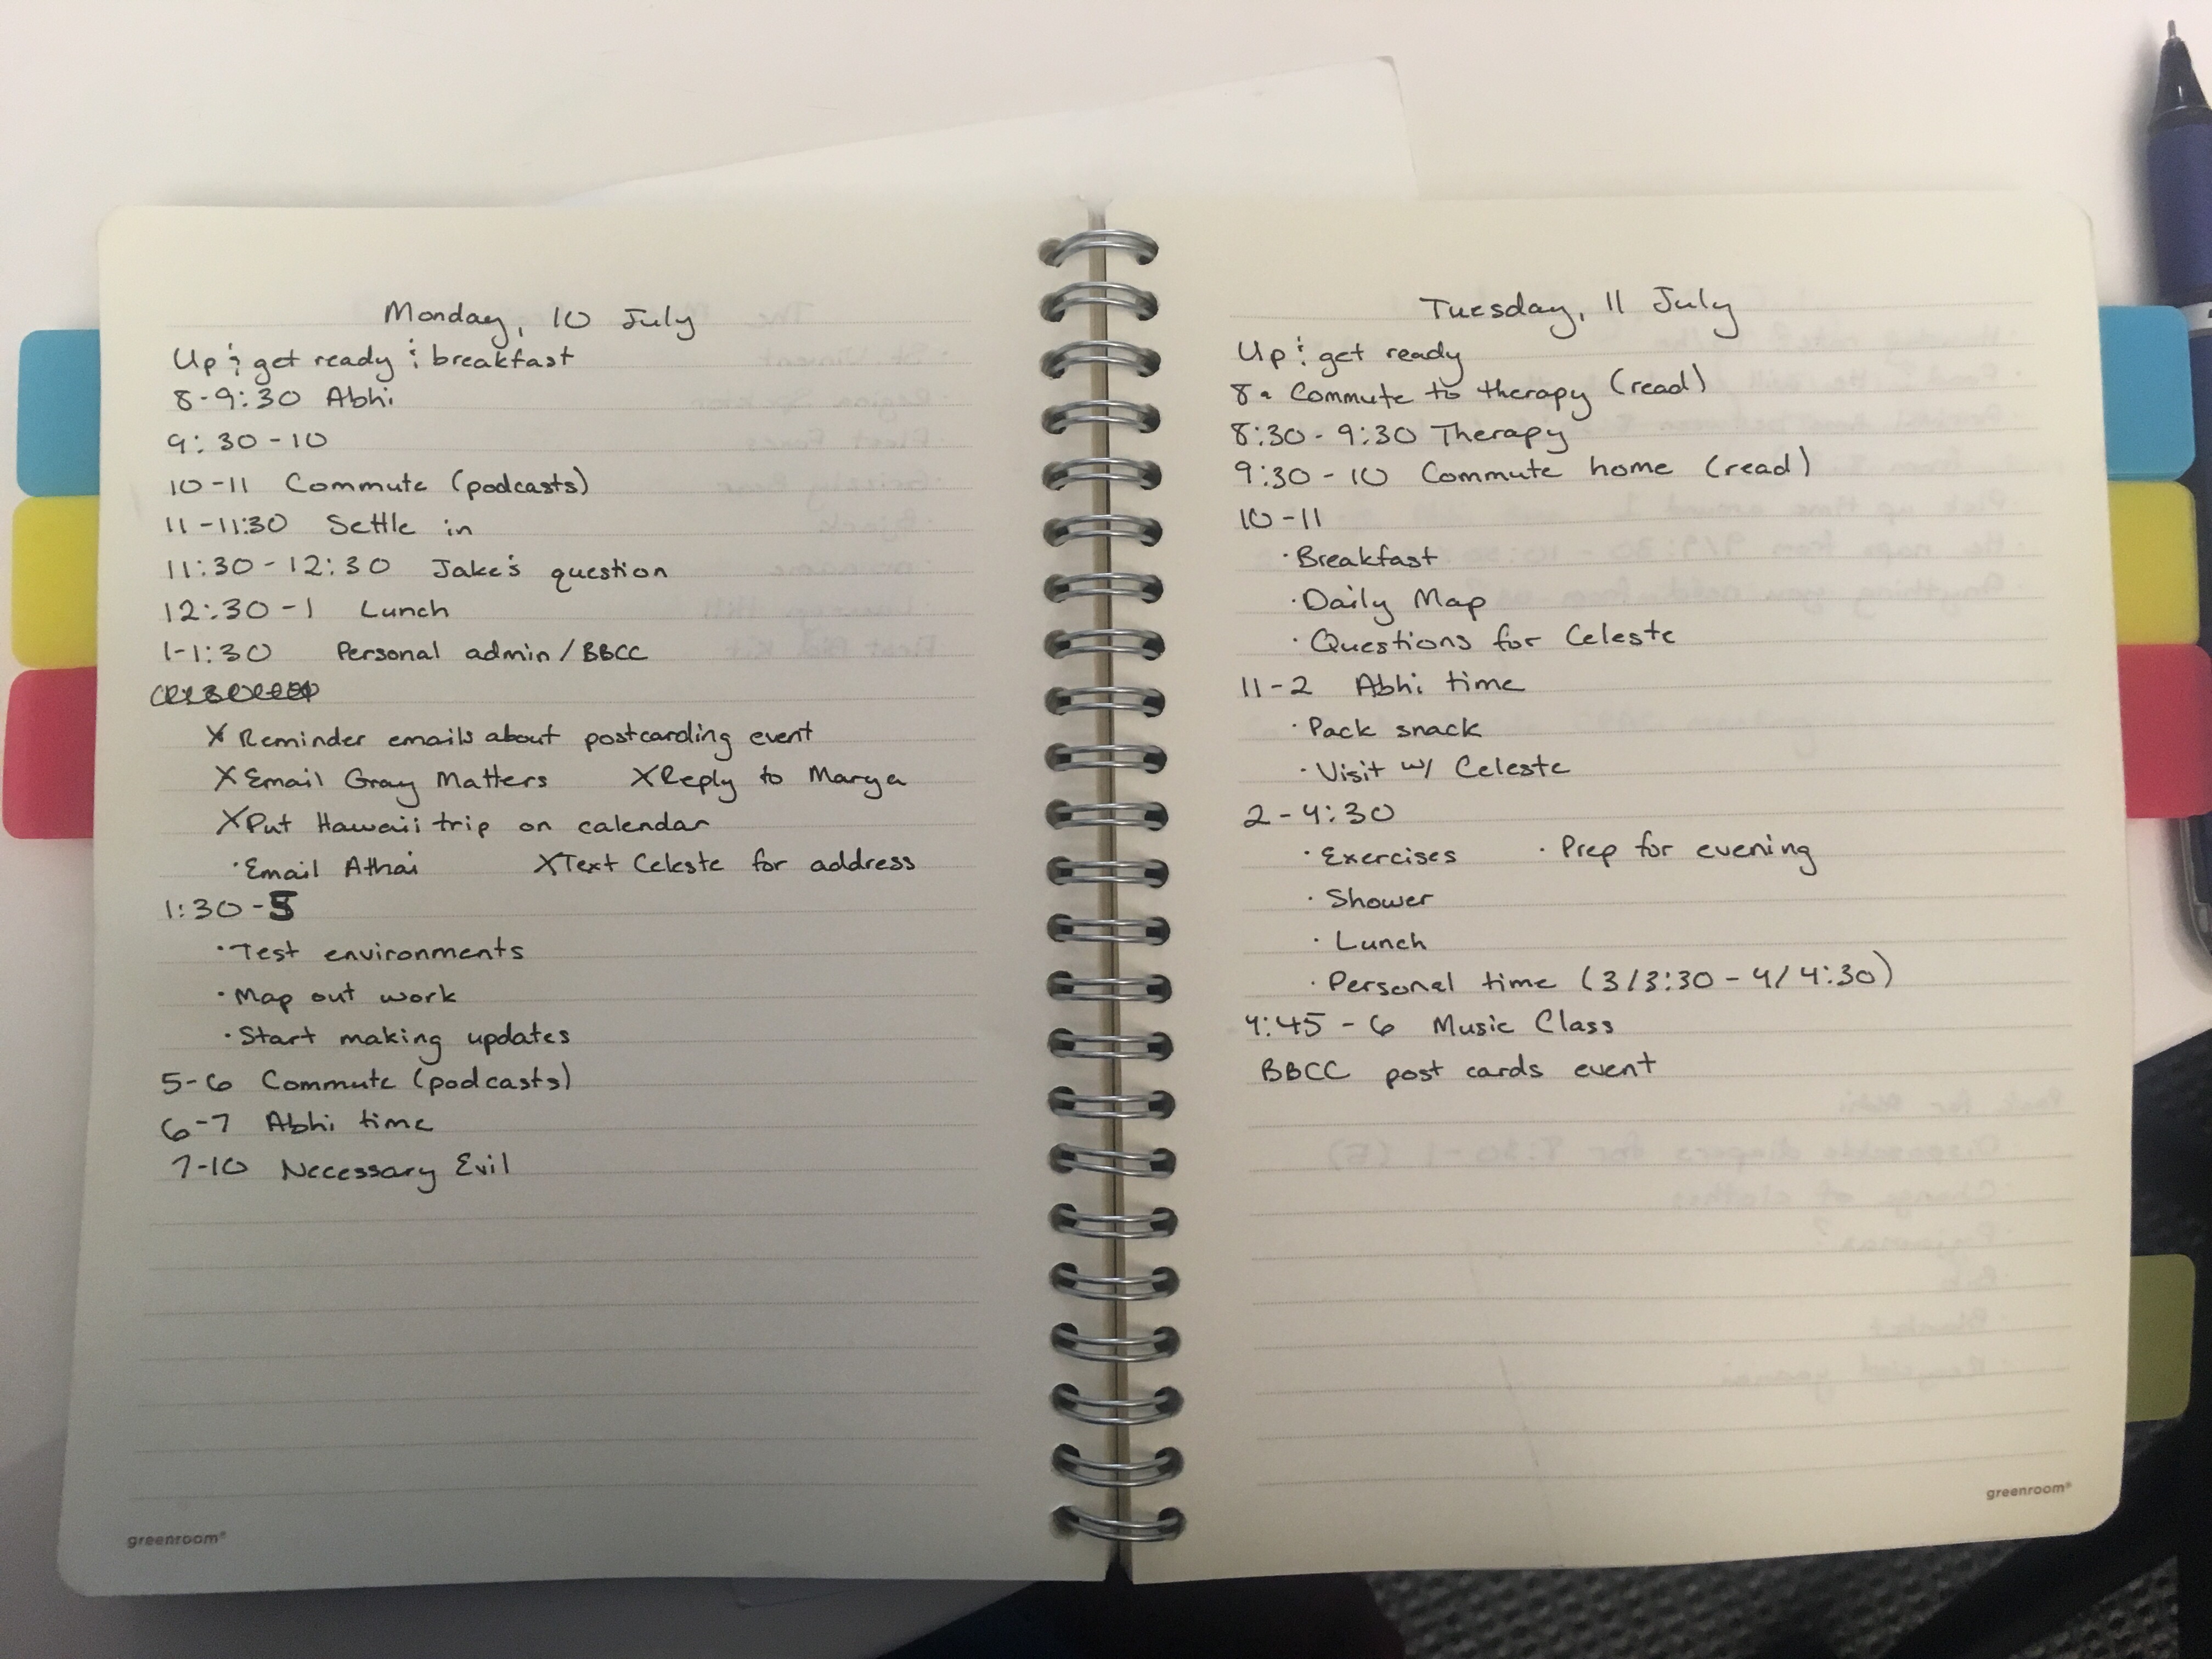 Monday, 10 July
Up & get ready & breakfast
8-9:30 Abhi
9:30-10
10-11 Commute (podcasts)
11-11:30 Settle in
11:30-12:30 Jake's question
12:30-1 Lunch
1-1:30 Personal admin/BBCC
X Reminder emails about postcarding event
X Email Gray Matters X Reply to Marya
X Put Hawaii trip on calendar
· Email Athai X Text Celeste for address
1:30-5
· Test environments
· Map out work
· Start making updates
5-6 Commute (podcasts)
6-7 Abhi time
7-10 Necessary Evil
greenroom®
Tuesday, 11 July
Up & get ready
8- Commute to therapy (read)
8:30-9:30 Therapy
9:30-10 Commute home (read)
10-11
· Breakfast
· Daily Map
· Questions for Celeste
11-2 Abhi time
· Pack snack
· Visit w/ Celeste
2-4:30
· Exercises · Prep for evening
· Shower
· Lunch
· Personal time (3/3:30-4/4:30)
4:45-6 Music Class
BBCC post cards event
greenroom®